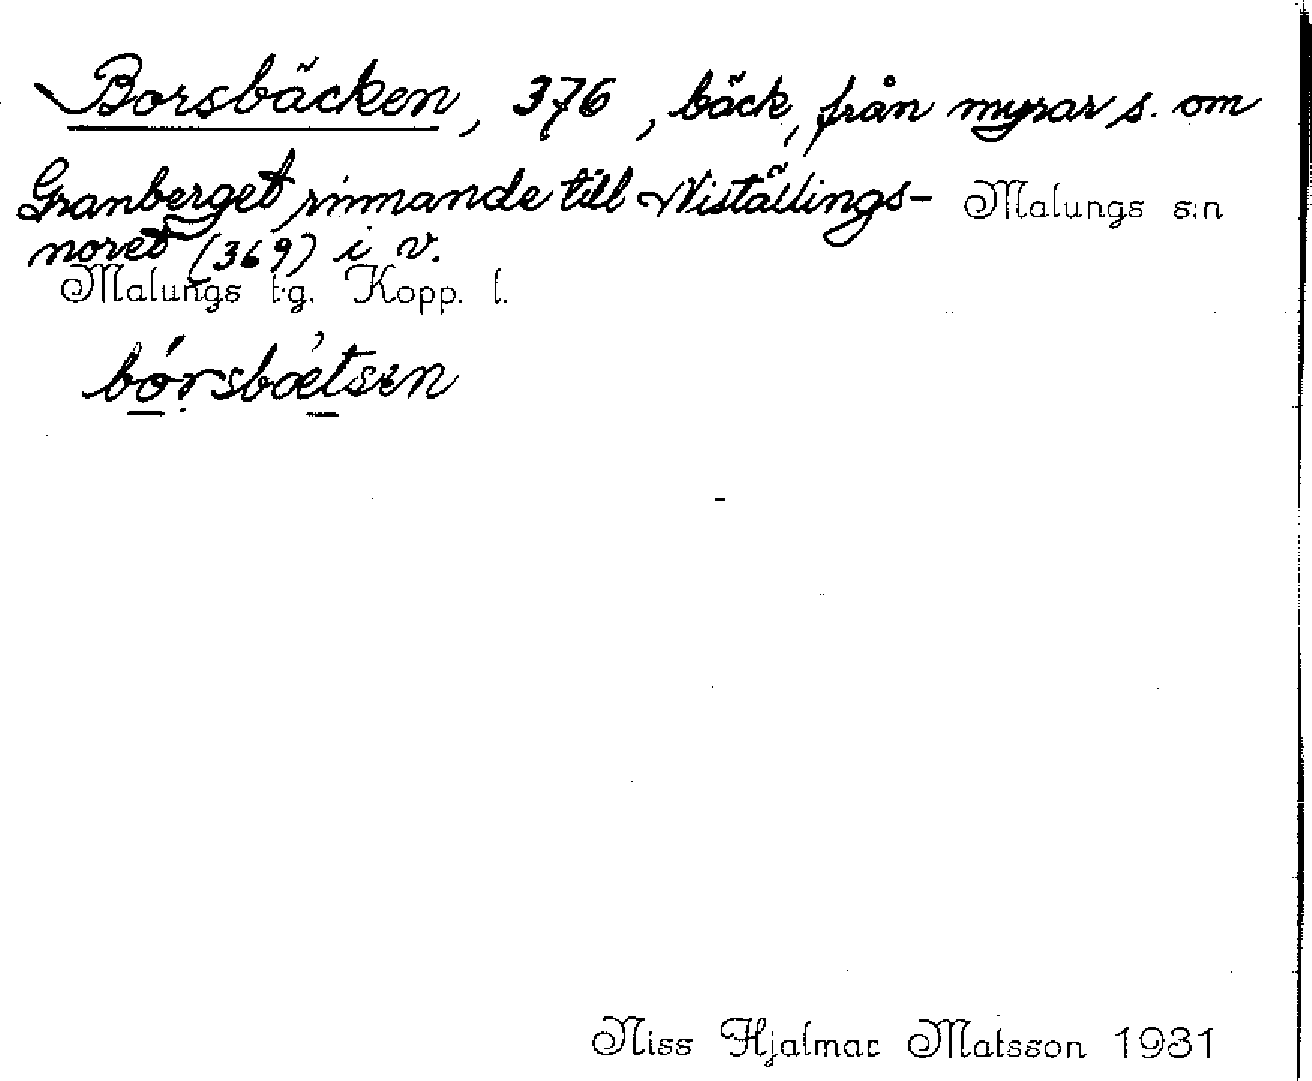 Borsbäcken, 376, bäck, från myrar s. om
Granberget rinnande till Niställings- Malungs s:n
noret (369) i v.
Malungs t.g. Kopp. l.
bórsbæ̀tsen
Niss Hjalmar Matsson 1931